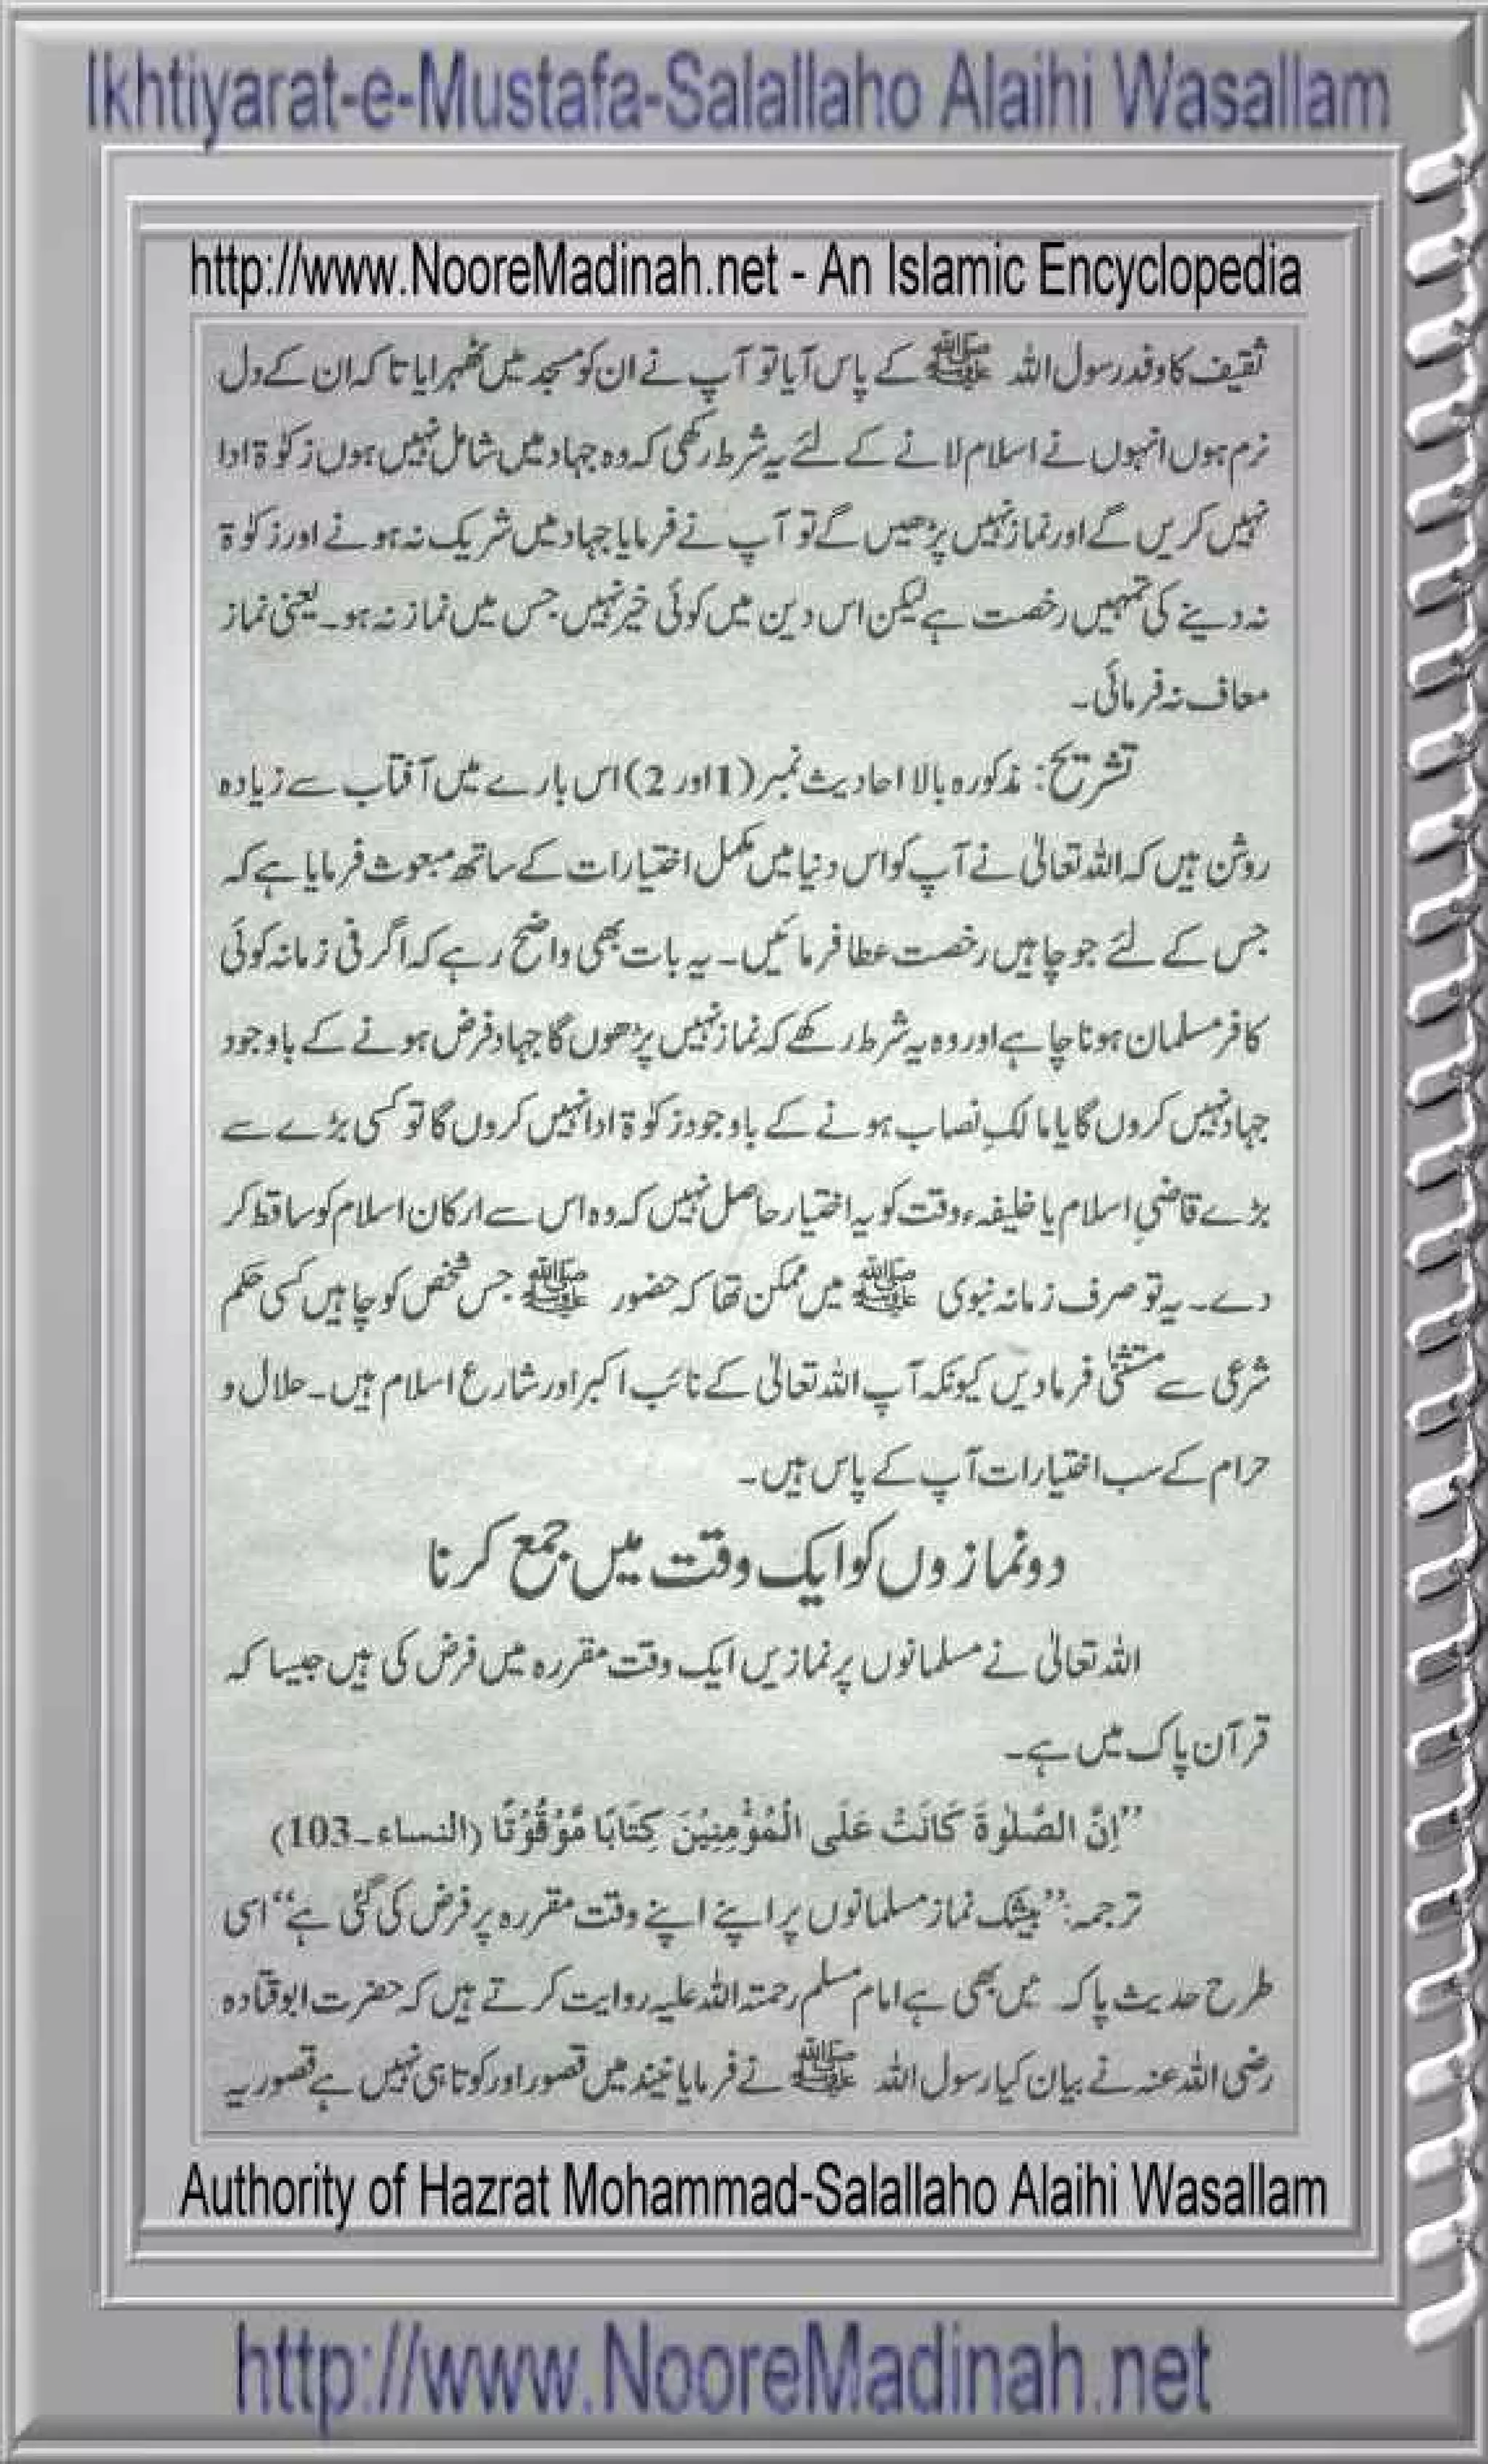 Ikhtiyarat-e-Mustafa-Salallaho Alaihi Wasallam
http://www.NooreMadinah.net - An Islamic Encyclopedia
ثقیف کا وفد رسول اللہ ﷺ کے پاس آیا تو آپ نے ان کو مسجد میں ٹھہرایا تا کہ ان کے دل
نرم ہوں انہوں نے اسلام لانے کے لئے یہ شرط رکھی کہ وہ جہاد میں شامل نہیں ہوں زکوٰۃ ادا
نہیں کریں گے اور نماز نہیں پڑھیں گے تو آپ نے فرمایا جہاد میں شریک نہ ہونے اور زکوٰۃ
نہ دینے کی تمہیں رخصت ہے لیکن اس دین میں کوئی خیر نہیں جس میں نماز نہ ہو۔ یعنی نماز
معاف نہ فرمائی۔
تشریح: مذکورہ بالا احادیث نمبر (1 اور 2) اس بارے میں آفتاب سے زیادہ
روشن ہیں کہ اللہ تعالیٰ نے آپ کو اس دنیا میں مکمل اختیارات کے ساتھ مبعوث فرمایا ہے کہ
جس کے لئے جو چاہیں رخصت عطا فرمائیں۔ یہ بات بھی واضح رہے کہ اگر فی زمانہ کوئی
کافر مسلمان ہونا چاہے اور وہ یہ شرط رکھے کہ نماز نہیں پڑھوں گا جہاد فرض ہونے کے باوجود
جہاد نہیں کروں گا یا مالکِ نصاب ہونے کے باوجود زکوٰۃ ادا نہیں کروں گا تو کسی بڑے سے
بڑے قاضیِ اسلام یا خلیفہء وقت کو یہ اختیار حاصل نہیں کہ وہ اس سے ارکان اسلام کو ساقط کر
دے۔ یہ تو صرف زمانہ نبوی ﷺ میں ممکن تھا کہ حضور ﷺ جس شخص کو چاہیں کسی حکم
شرعی سے مستثنیٰ فرما دیں کیونکہ آپ اللہ تعالیٰ کے نائب اکبر اور شارع اسلام ہیں۔ حلال و
حرام کے سب اختیارات آپ کے پاس ہیں۔
دو نمازوں کو ایک وقت میں جمع کرنا
اللہ تعالیٰ نے مسلمانوں پر نمازیں ایک وقت مقررہ میں فرض کی ہیں جیسا کہ
قرآن پاک میں ہے۔
”اِنَّ الصَّلٰوةَ كَانَتْ عَلَى الْمُؤْمِنِيْنَ كِتَابًا مَّوْقُوْتًا (النساء۔103)
ترجمہ: ”بیشک نماز مسلمانوں پر اپنے اپنے وقت مقررہ پر فرض کی گئی ہے“ اسی
طرح حدیث پاک میں بھی ہے امام مسلم رحمتہ اللہ علیہ روایت کرتے ہیں کہ حضرت ابو قتادہ
رضی اللہ عنہ نے بیان کیا رسول اللہ ﷺ نے فرمایا نیند میں قصور اور کوتاہی نہیں ہے قصور یہ
Authority of Hazrat Mohammad-Salallaho Alaihi Wasallam
http://www.NooreMadinah.net